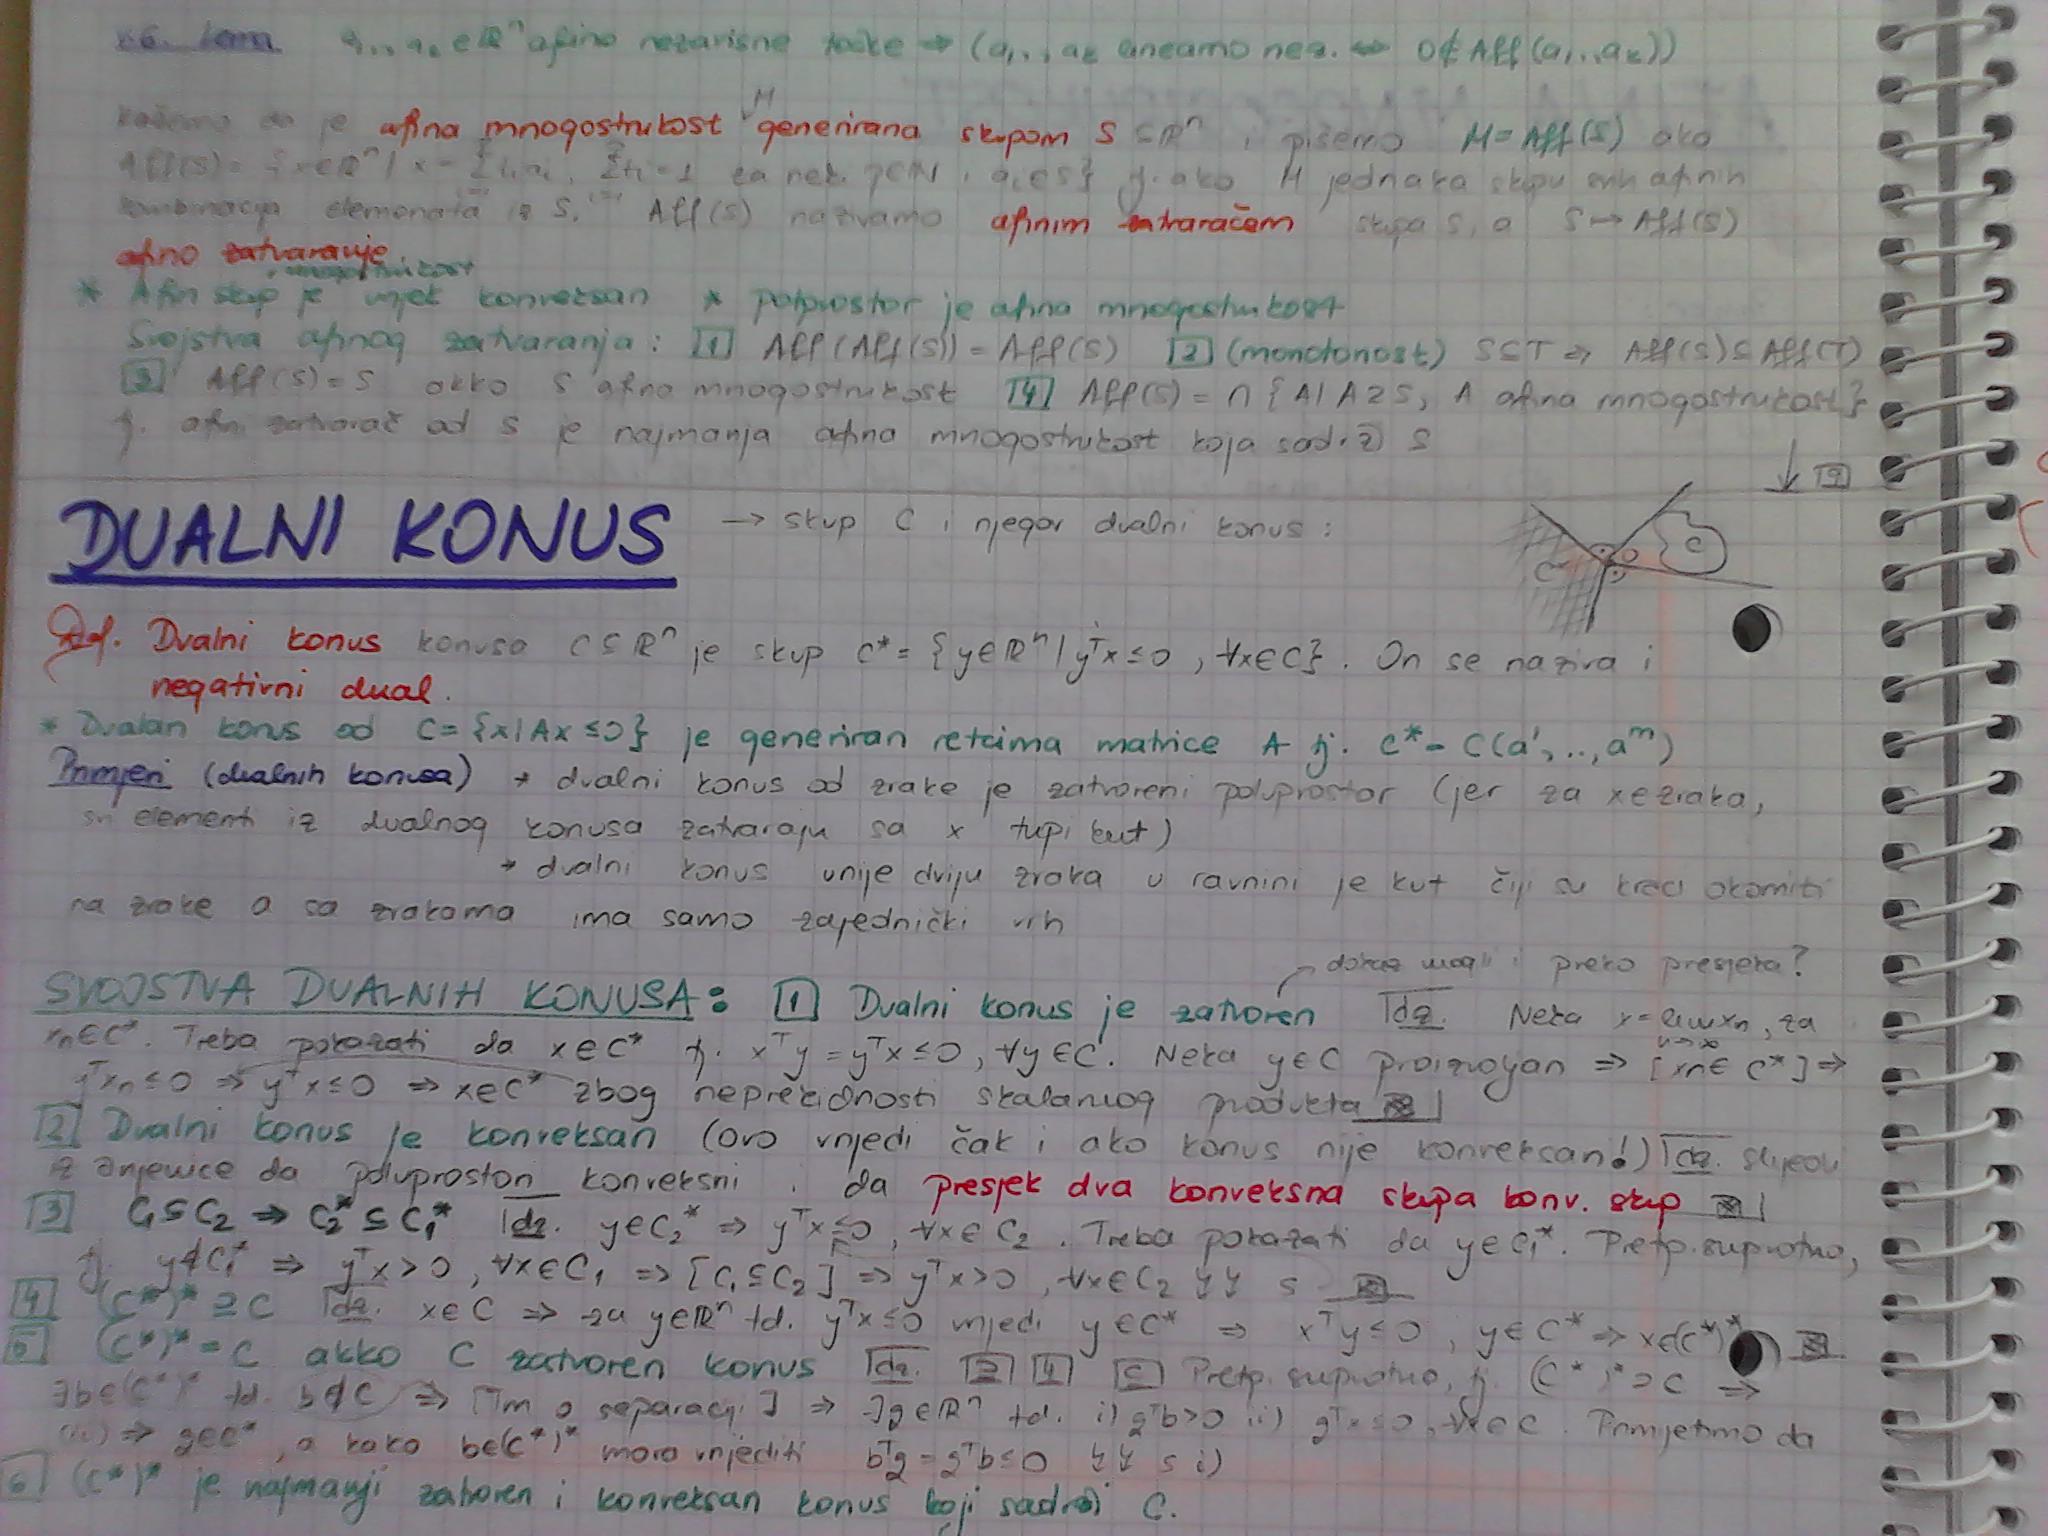 a₁,..,aₖ∈ℝⁿ afino nezavisne točke ⇒ (a₁,..,aₖ linearno nez. ⇔ 0∉Aff(a₁,..,aₖ))
Kažemo da je afina mnogostrukost M generirana skupom S⊆ℝⁿ i pišemo M=Aff(S) ako
Aff(S)= {x∈ℝⁿ | x=Σtᵢaᵢ, Σtᵢ=1 za nek. p∈ℕ i aᵢ∈S} tj. ako M jednaka skupu svih afinih
kombinacija elemenata iz S. Aff(S) nazivamo afinim zatvaračem skupa S, a S→Aff(S)
afino zatvaranje.
* Afin skup je uvjek konveksan * potprostor je afina mnogostrukost
Svojstva afinog zatvaranja: [1] Aff(Aff(S))=Aff(S) [2] (monotonost) S⊆T ⇒ Aff(S)⊆Aff(T)
[3] Aff(S)=S akko S afina mnogostrukost [4] Aff(S)=∩{A|A⊇S, A afina mnogostrukost}
tj. afini zatvarač od S je najmanja afina mnogostrukost koja sadrži S
DUALNI KONUS → skup C i njegov dualni konus:
C* C
Def. Dualni konus konusa C⊆ℝⁿ je skup C*={y∈ℝⁿ | yᵀx≤0, ∀x∈C}. On se naziva i
negativni dual.
* Dualan konus od C={x|Ax≤0} je generiran retcima matrice A tj. C*=C(a¹,..,aᵐ)
Primjeri (dualnih konusa) * dualni konus od zrake je zatvoreni poluprostor (jer za x∈zraka,
svi elementi iz dualnog konusa zatvaraju sa x tupi kut)
* dualni konus unije dviju zraka u ravnini je kut čiji su kraci okomiti
na zrake a sa zrakama ima samo zajednički vrh
dokaz mogli i preko presjeka?
SVOJSTVA DUALNIH KONUSA: [1] Dualni konus je zatvoren dz. Neka x=lim xₙ, za
n→∞
xₙ∈C*. Treba pokazati da x∈C* tj. xᵀy=yᵀx≤0, ∀y∈C. Neka y∈C proizvoljan ⇒ [xₙ∈C*] ⇒
yᵀxₙ≤0 ⇒ yᵀx≤0 ⇒ x∈C* zbog neprekidnosti skalarnog produkta
[2] Dualni konus je konveksan (ovo vrijedi čak i ako konus nije konveksan!) dz. slijedi
iz činjenice da poluprostori konveksni i da presjek dva konveksna skupa konv. skup
[3] C₁⊆C₂ ⇒ C₂*⊆C₁* dz. y∈C₂* ⇒ yᵀx≤0, ∀x∈C₂. Treba pokazati da y∈C₁*. Pretp. suprotno,
tj. y∉C₁* ⇒ yᵀx>0, ∀x∈C₁ ⇒ [C₁⊆C₂] ⇒ yᵀx>0, ∀x∈C₂ ↯↯ s
[4] (C*)*⊇C dz. x∈C ⇒ za y∈ℝⁿ td. yᵀx≤0 vrijedi y∈C* ⇒ xᵀy≤0, y∈C* ⇒ x∈(C*)*
[5] (C*)*=C akko C zatvoren konus dz. [⊇] [4] [⊆] Pretp. suprotno, tj. (C*)*⊃C ⇒
∃b∈(C*)* td. b∉C ⇒ [Tm o separaciji] ⇒ ∃g∈ℝⁿ td. i) gᵀb>0 ii) gᵀx≤0, ∀x∈C. Primjetimo da
(ii) ⇒ g∈C*, a kako b∈(C*)* mora vrijediti bᵀg=gᵀb≤0 ↯↯ s i)
[6] (C*)* je najmanji zatvoren i konveksan konus koji sadrži C.